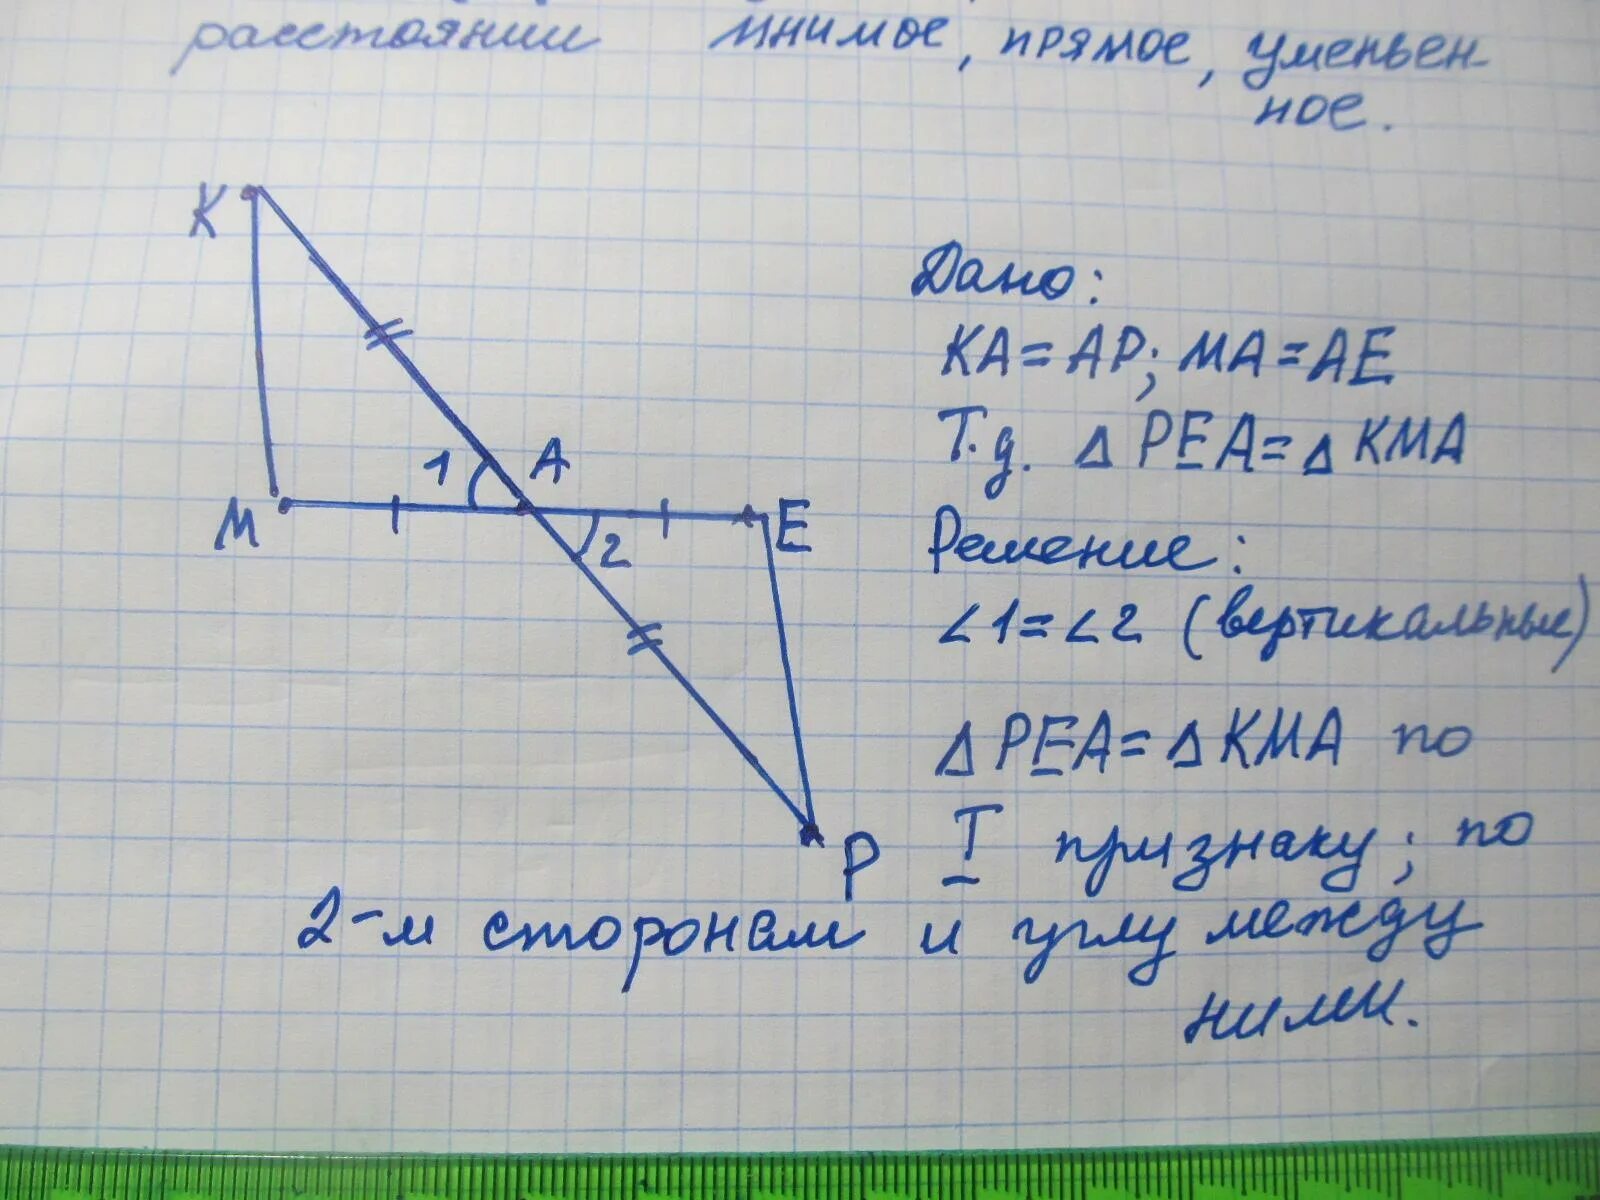 расстоянии мнимое, прямое, уменьен-
ное.
K
M
1
A
2
E
P
Дано:
KA = AP; MA = AE
Т.д. Δ PEA = Δ KMA
Решение:
∠1 = ∠2 (вертикальные)
Δ PEA = Δ KMA по
I признаку; по
2-м сторонам и углу между
ними.